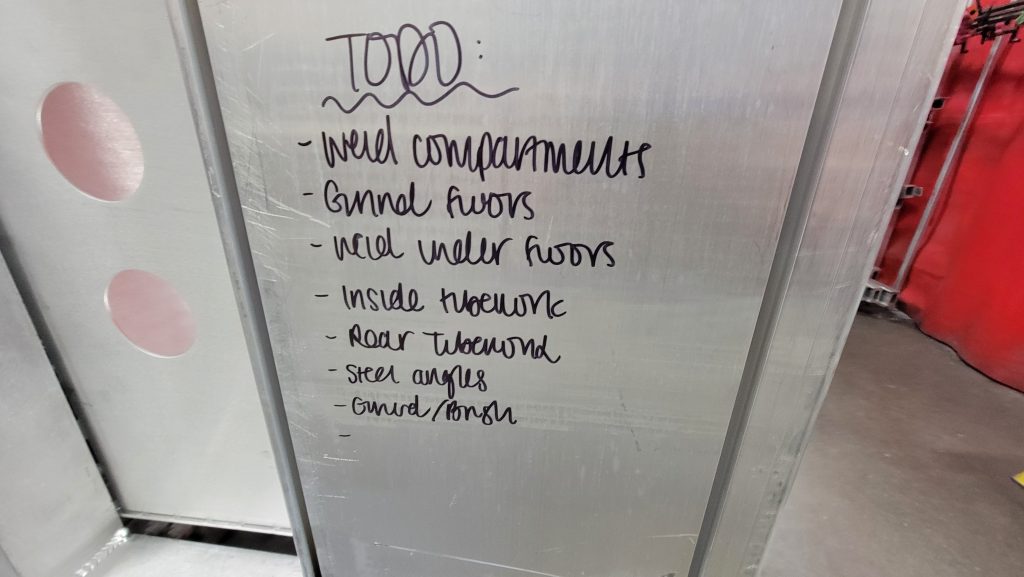 TODO:
- Weld compartments
- Grind floors
- Weld under floors
- Inside tubework
- Rear Tubework
- Steel angles
- Grind/Polish
-